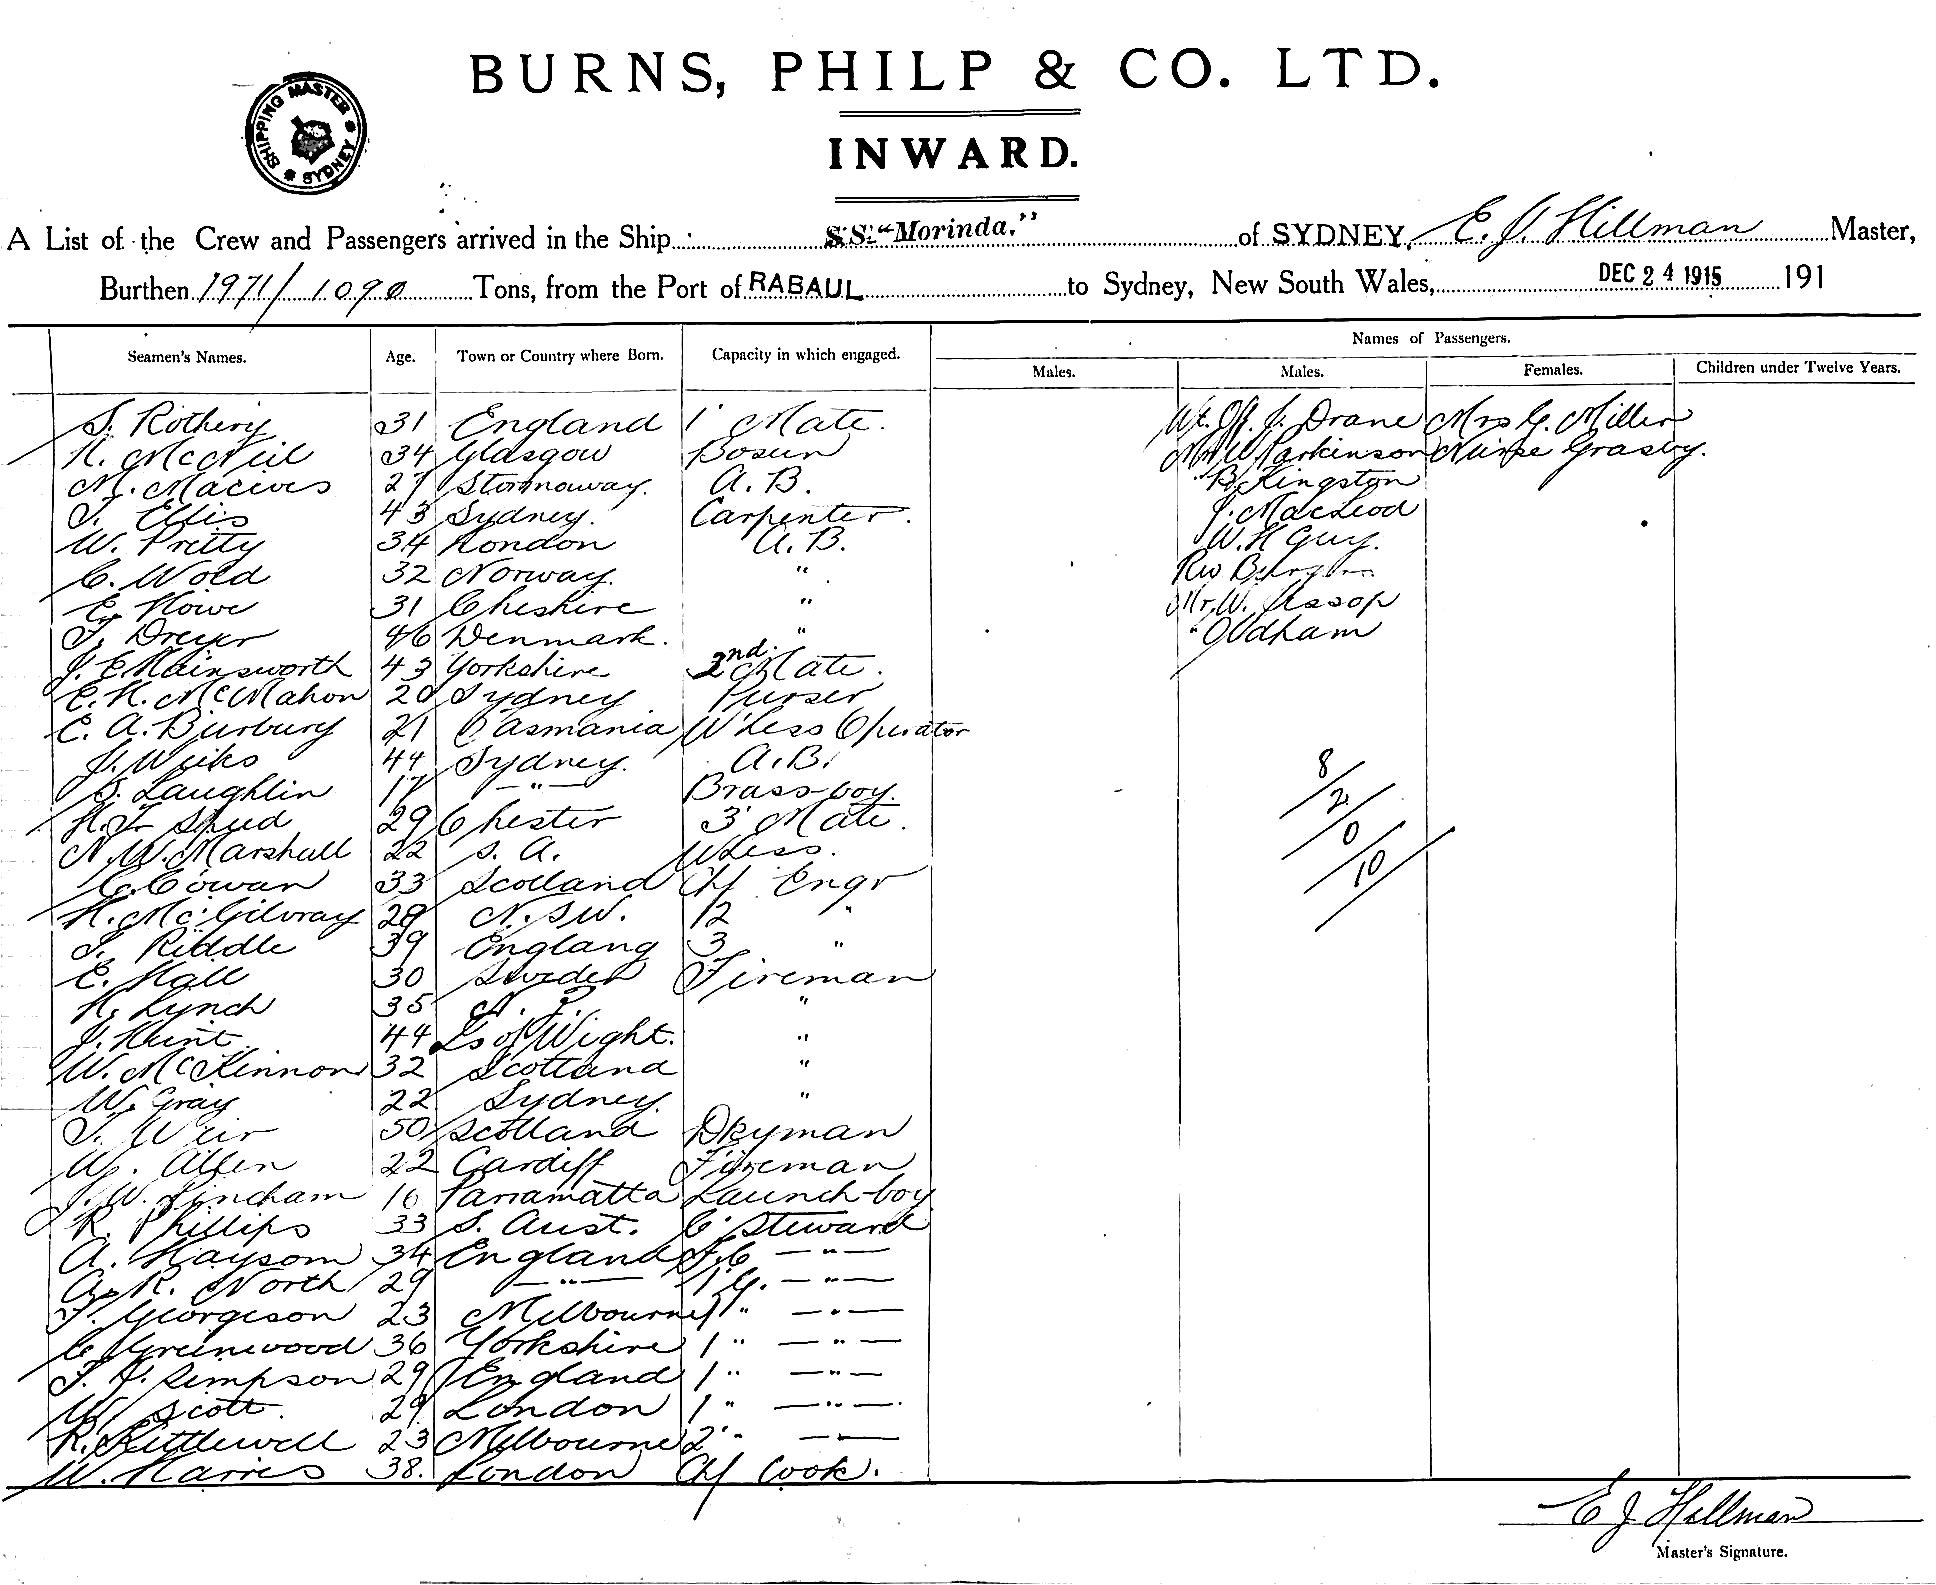 BURNS, PHILP & CO. LTD.
SHIPPING MASTER * SYDNEY *
INWARD.
A List of the Crew and Passengers arrived in the Ship S.S. "Morinda." of SYDNEY, E. J. Hillman Master,
Burthen 1971/1090 Tons, from the Port of RABAUL to Sydney, New South Wales, DEC 24 1915 191
Names of Passengers.
Seamen's Names. Age. Town or Country where Born. Capacity in which engaged. Males. Males. Females. Children under Twelve Years.
S. Rothery 31 England 1' Mate. Wt. Off. J. Drane Mrs G. Miller
N. McNeil 34 Glasgow Bosun Mr W Parkinson Nurse Grasby.
M. Macives 27 Stornoway. A. B. " B. Kingston
T. Ellis 43 Sydney. Carpenter. J. MacLeod
W. Pretty 34 London A. B. W. H Guy.
C. Wold 32 Norway. " Rev
E. Howe 31 Cheshire " Mr. W. Aesop
T. Dreyer 46 Denmark. " " Oldham
J. E Hainsworth 43 Yorkshire 2nd Mate.
E. H. McMahon 20 Sydney Purser
E. A. Burbury 21 Tasmania W'Less Operator
J. Weiks 44 Sydney. A. B.
S. Laughlin 17 — " — Brass-boy.
8/2/0/10/
H. F. Shud 29 Chester 3' Mate.
N. W. Marshall 22 S. A. W'Less.
C. Cowan 33 Scotland Chf Engr
H. McGilvray 29 N. S W. 2 "
T. Riddle 39 Englang 3 "
E. Hall 30 Sweden Fireman
H. Lynch 35 N. Z. "
J. Hunt 44 Is of Wight. "
W. McKinnon 32 Scotland "
W. Gray 22 Sydney. "
T. Weir 50 Scotland Dkyman
W. Allen 22 Cardiff Fireman
J. W. Lincham 16 Parramatta Launch-boy
R. Phillips 33 S. Aust. C' Steward
A. Haysom 34 England F. C — " —
A. R. North 29 — " — 1 G. — " —
T. Georgeson 23 Melbourne 1 " — " —
C. Greenwood 36 Yorkshire 1 " — " —
T. J. Simpson 29 England 1 " — " —
W. Scott. 29 London 1 " — " —
R. Kettlewell 23 Melbourne 2' " — " —
W. Harris 38. London Chf Cook.
E J Hillman
Master's Signature.